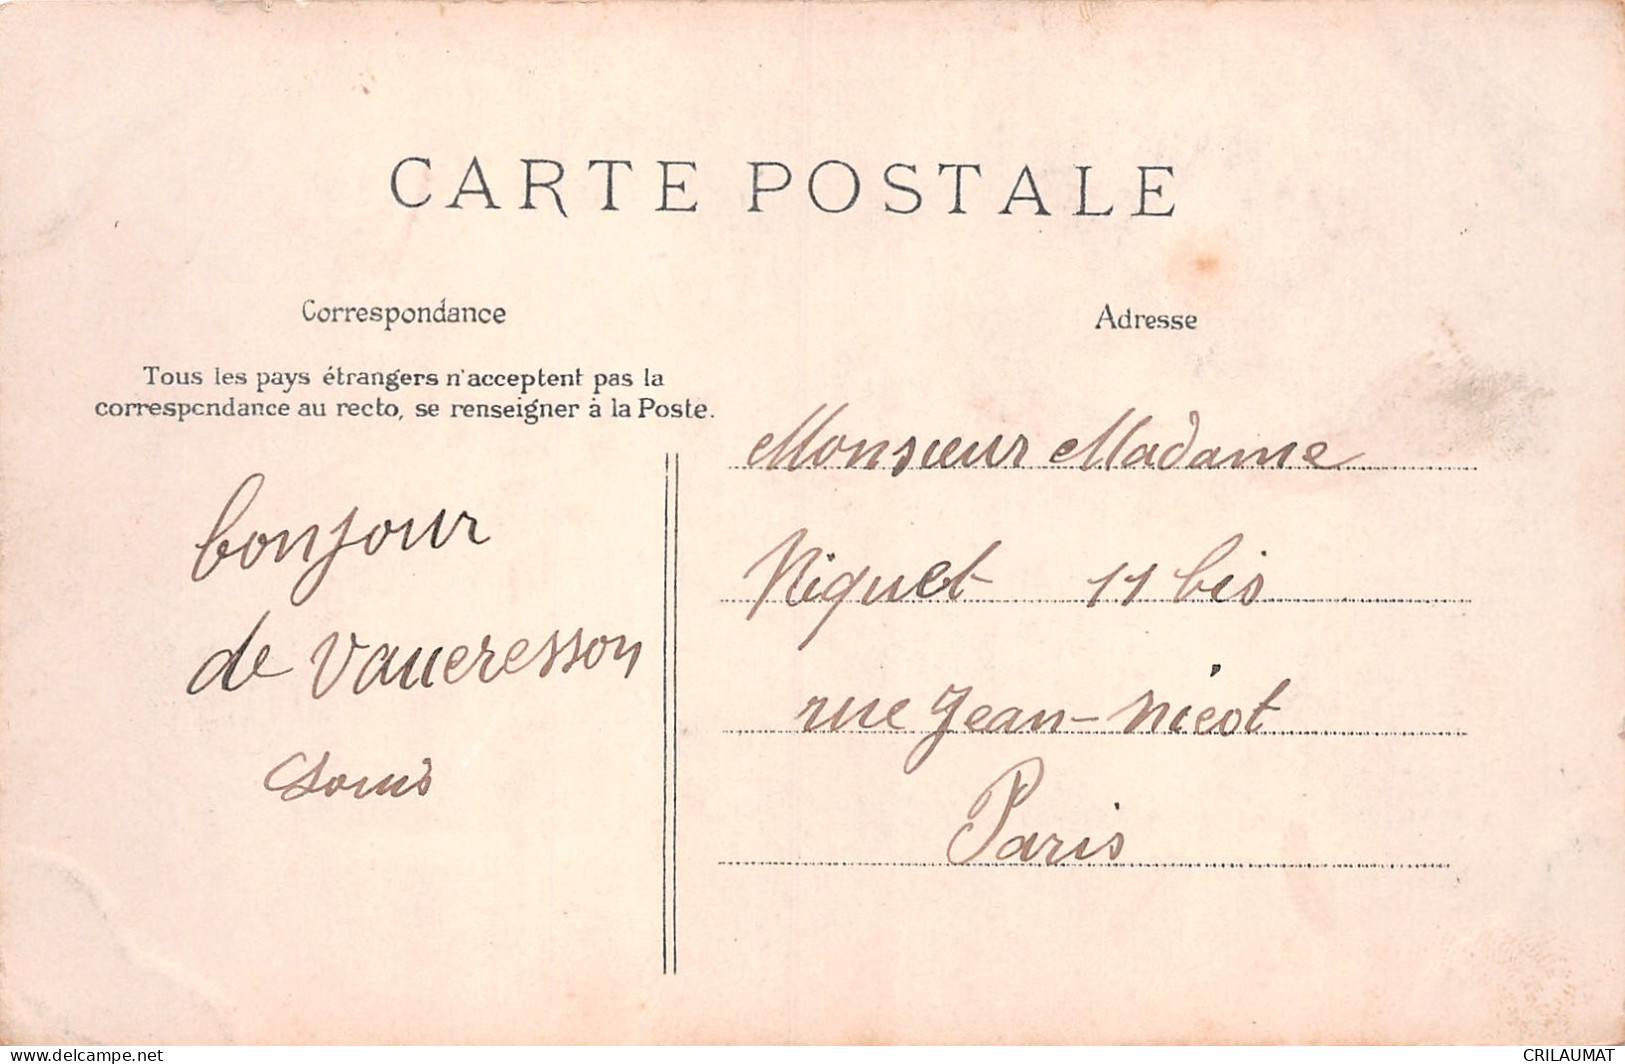 CARTE POSTALE
Correspondance
Tous les pays étrangers n'acceptent pas la
correspondance au recto, se renseigner à la Poste.
bonjour
de Vaucresson
Louis
Adresse
Monsieur Madame
Niquet 11 bis
rue Jean-Nicot
Paris
www.delcampe.net
CRILAUMAT